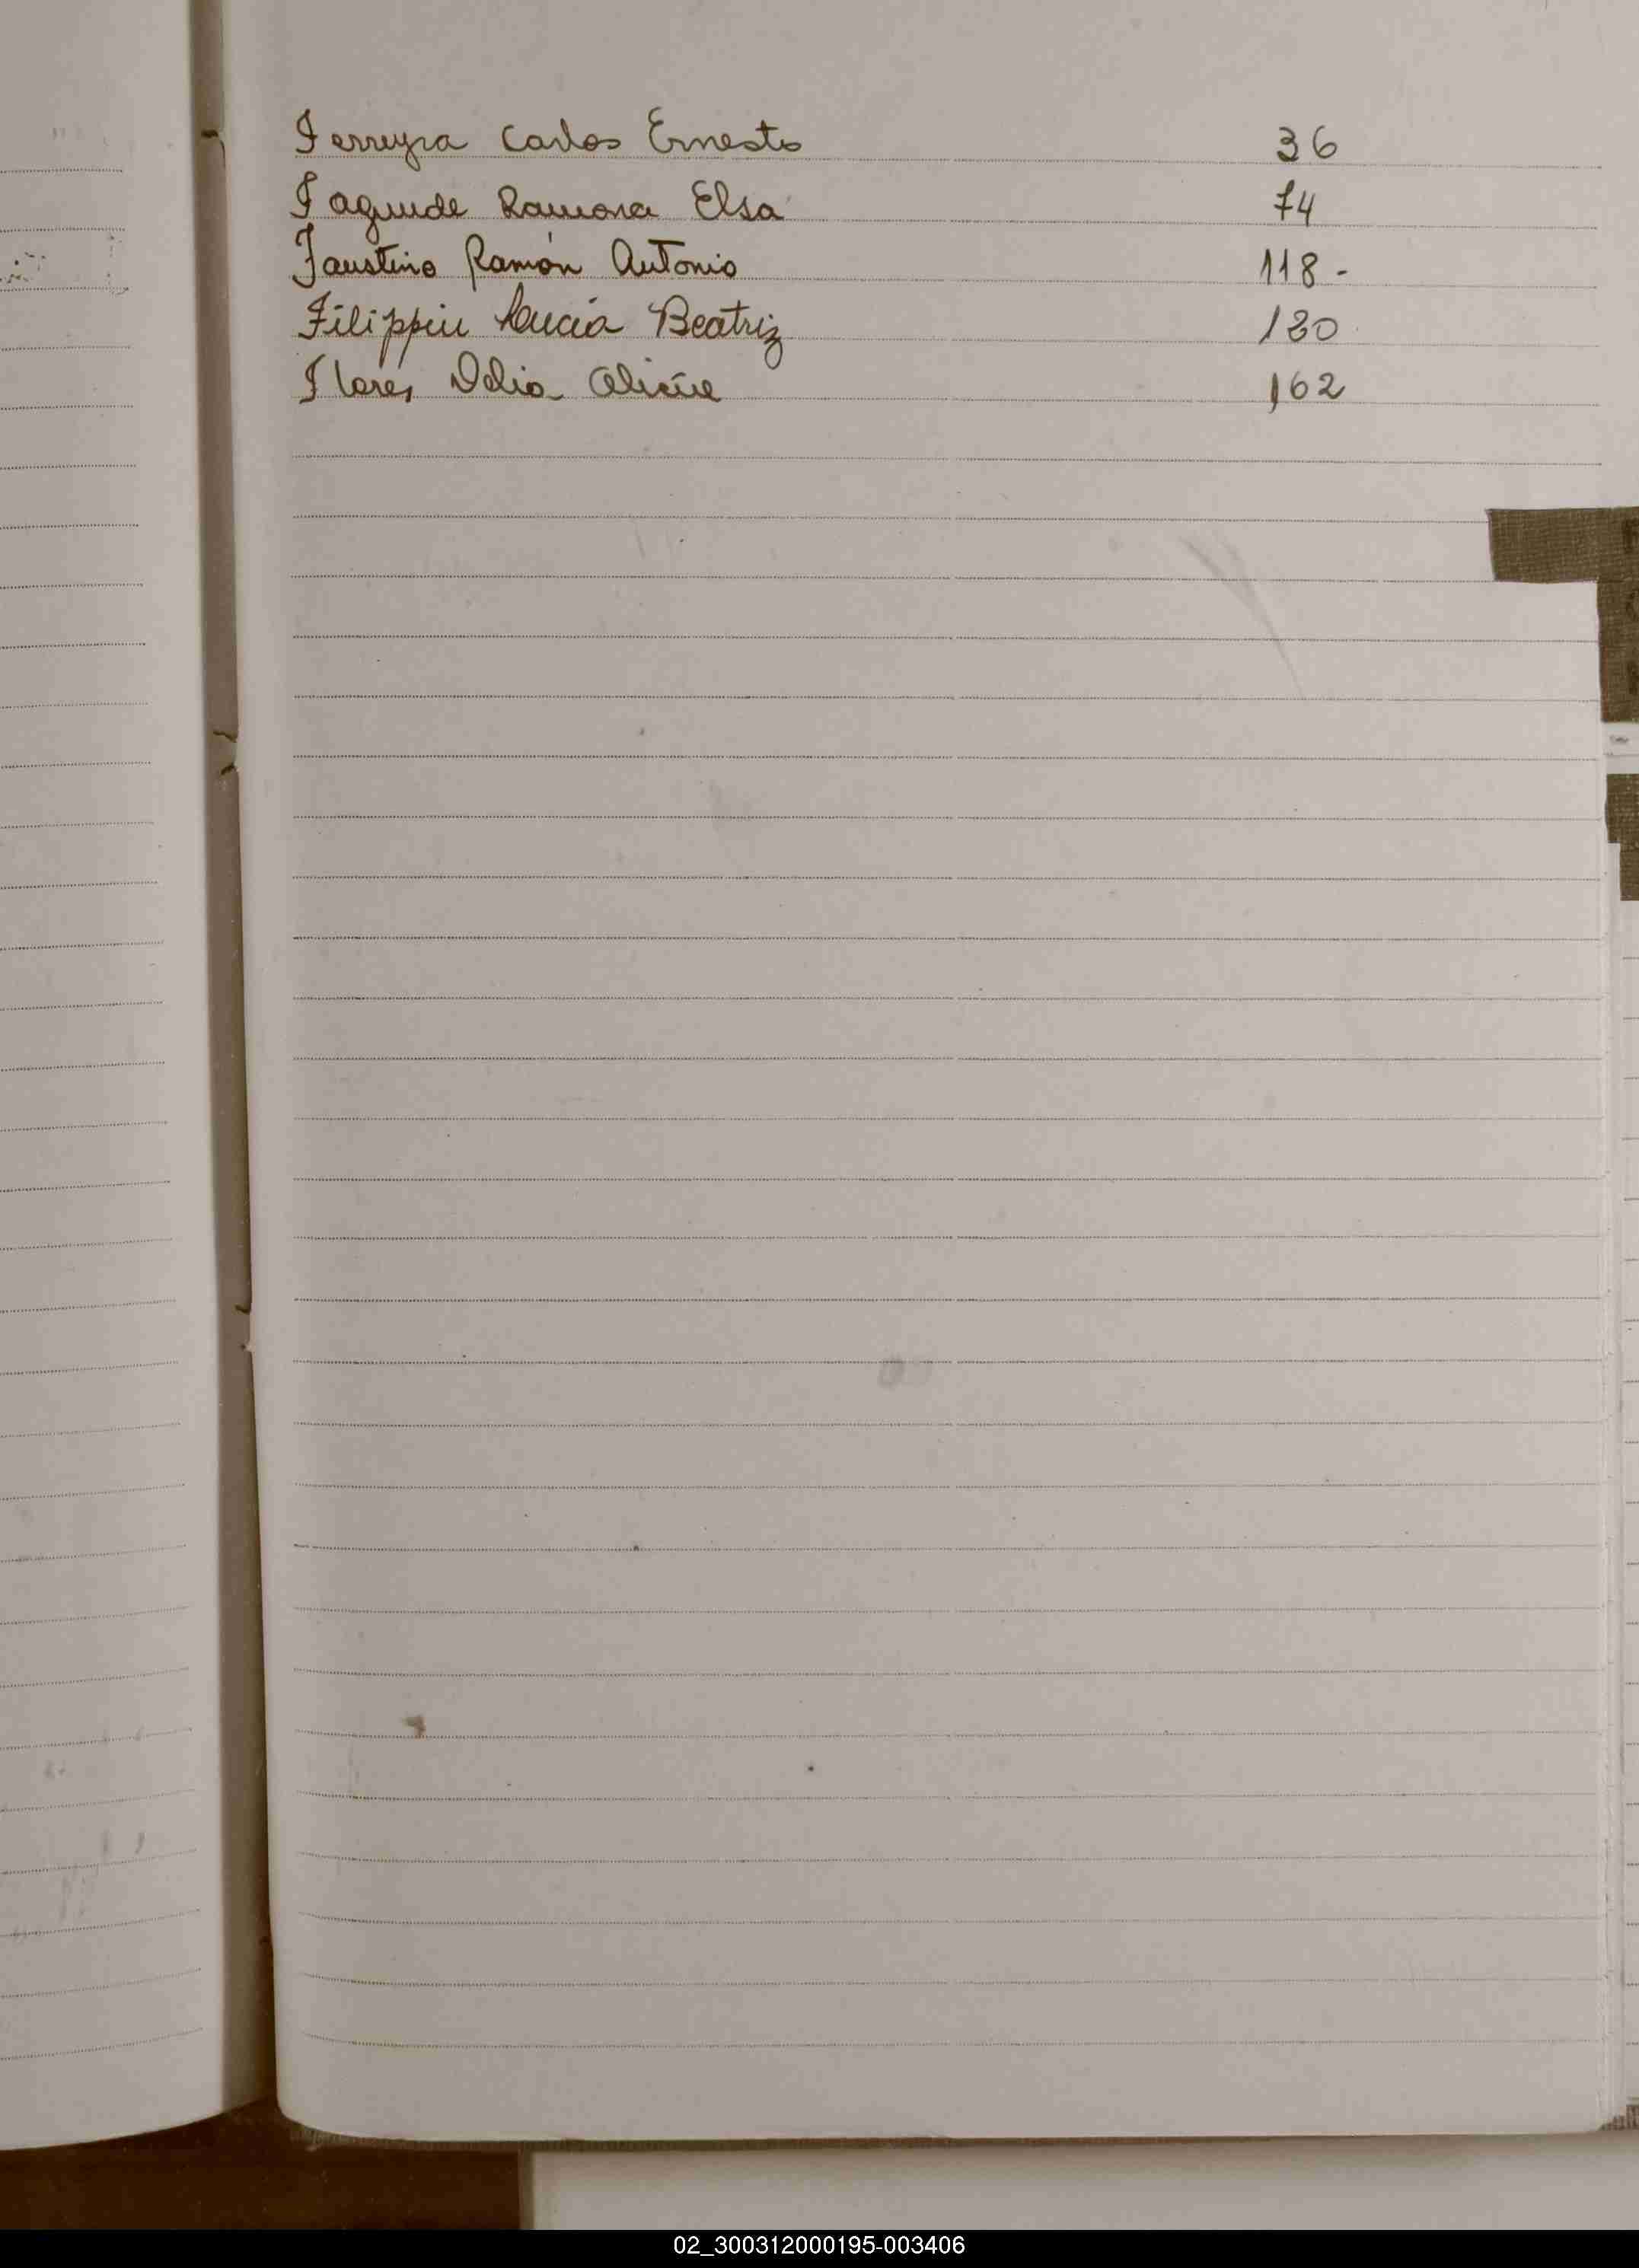 Ferreyra Carlos Ernesto 36
Fagunde Ramona Elsa 74
Faustino Ramón Antonio 118 -
Filippin Lucía Beatriz 120
Flores Delia 162
02_300312000195-003406